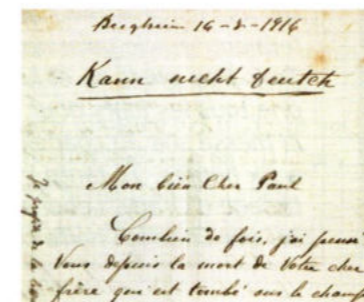 Bergheim 16-2-1916
Kann nicht Deutch
Mon bien Cher Paul
Combien de fois, j'ai pensé
Vous depuis la mort de Votre cher
frère qui est tombé sur le champ
Je profite de la